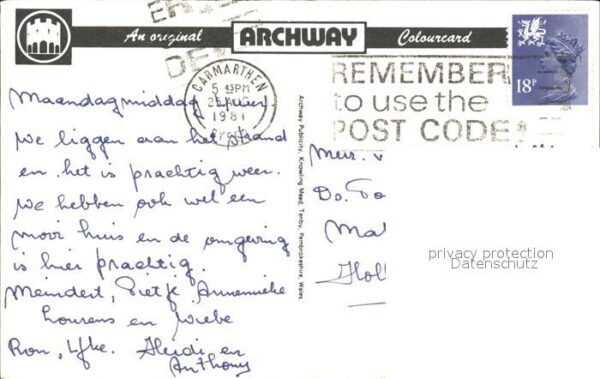 An original ARCHWAY Colourcard
CARMARTHEN
5 45PM
1981
DYFED
REMEMBER
to use the
POST CODE
18P
Maandagmiddag 4 uur
We liggen aan het strand
en het is prachtig weer.
We hebben ook wel een
mooi huis en de omgeving
is hier prachtig.
Meindert, Pietje, Annemieke
Lourens en Wiebe
Ron, Ifke. Heidi en
Anthony
Archway Publicity, Knowling Mead, Tenby, Pembrokeshire, Wales
Do.
Ma
Holl
privacy protection
Datenschutz